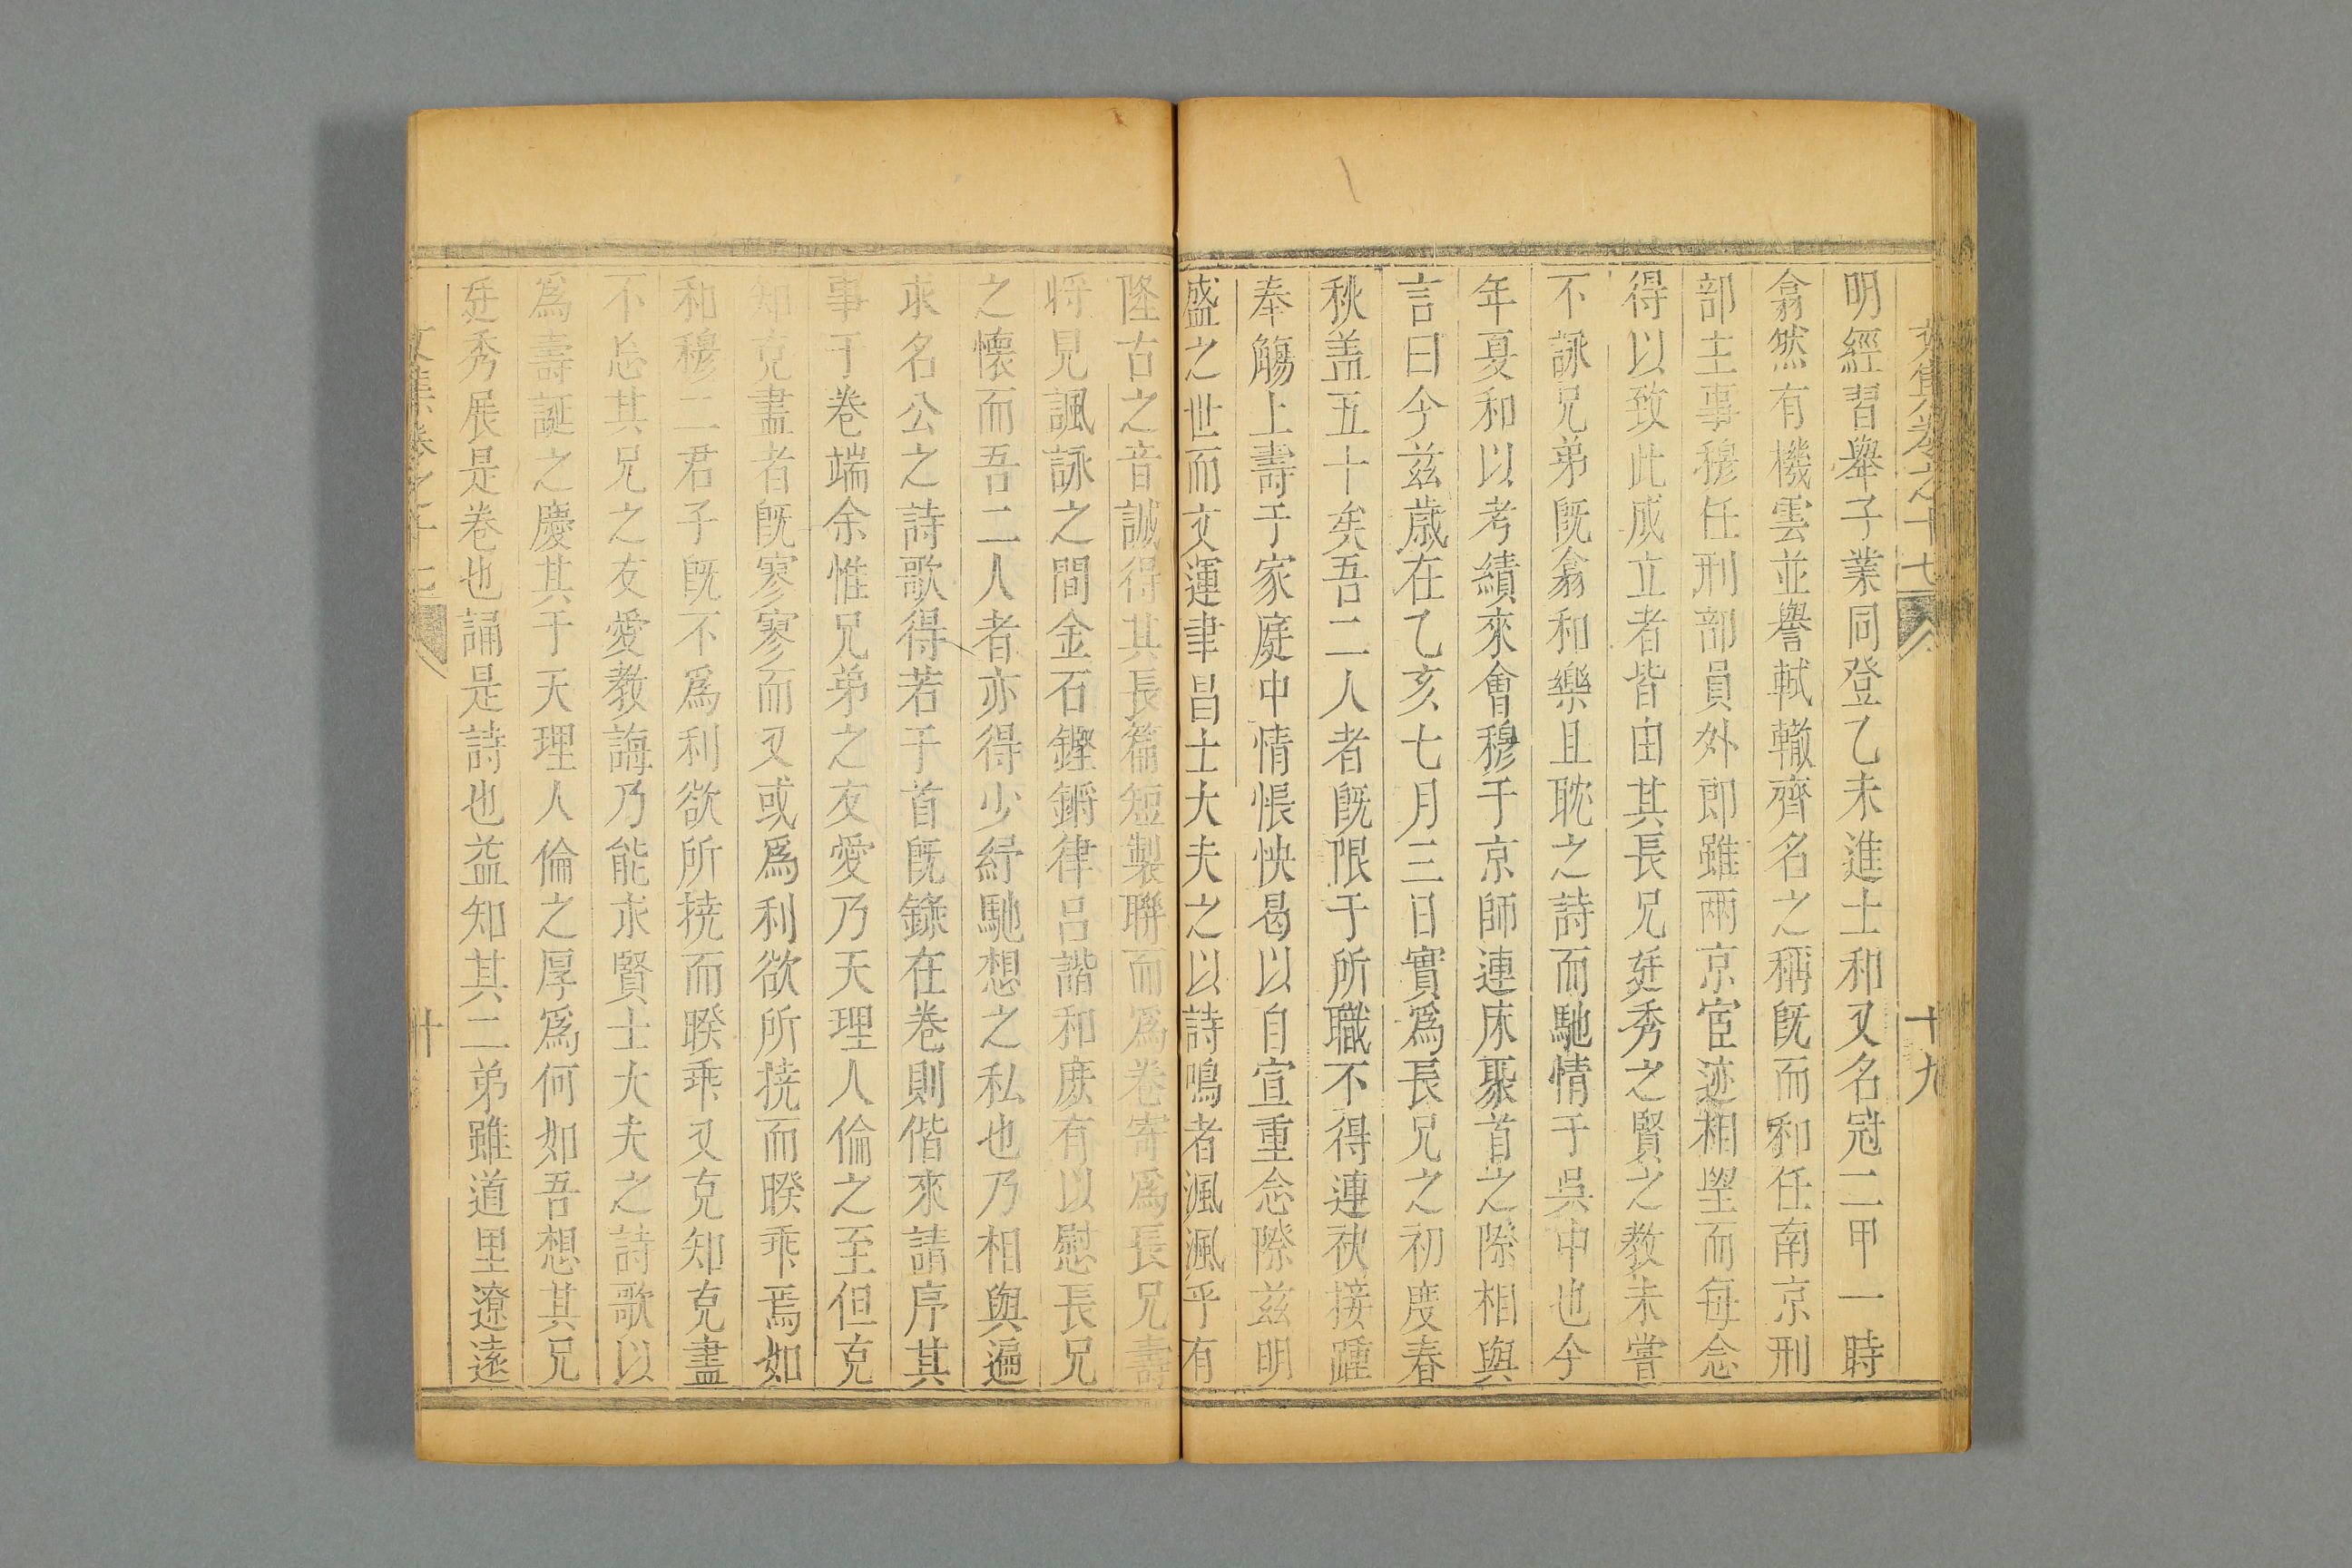 文集卷之十七 十九
明經習舉子業同登乙未進士和又名冠二甲一時
翕然有機雲並譽軾轍齊名之稱旣而和任南京刑
部主事穆任刑部員外郎雖兩京宦迹相望而每念
得以致此成立者皆由其長兄廷秀之賢之教未嘗
不詠兄弟旣翕和樂且耽之詩而馳情于吳中也今
年夏和以考績來會穆于京師連床聚首之際相與
言曰今茲歲在乙亥七月三日實爲長兄之初度春
秋盖五十矣吾二人者旣限于所職不得連袂接踵
奉觴上壽于家庭中情悵怏曷以自宣重念際茲明
盛之世而文運聿昌士大夫之以詩鳴者渢渢乎有
隆古之音誠得其長篇短製聯而爲卷寄爲長兄壽
將見諷詠之間金石鏗鏘律呂諧和庶有以慰長兄
之懷而吾二人者亦得少紓馳想之私也乃相與遍
求名公之詩歌得若干首旣錄在卷則偕來請序其
事于卷端余惟兄弟之友愛乃天理人倫之至但克
知克盡者旣寥寥而又或爲利欲所撓而暌乖焉如
和穆二君子旣不爲利欲所撓而暌乖又克知克盡
不忘其兄之友愛教誨乃能求賢士大夫之詩歌以
爲壽誕之慶其于天理人倫之厚爲何如吾想其兄
廷秀展是卷也誦是詩也益知其二弟雖道里遼遠
文集卷之十七